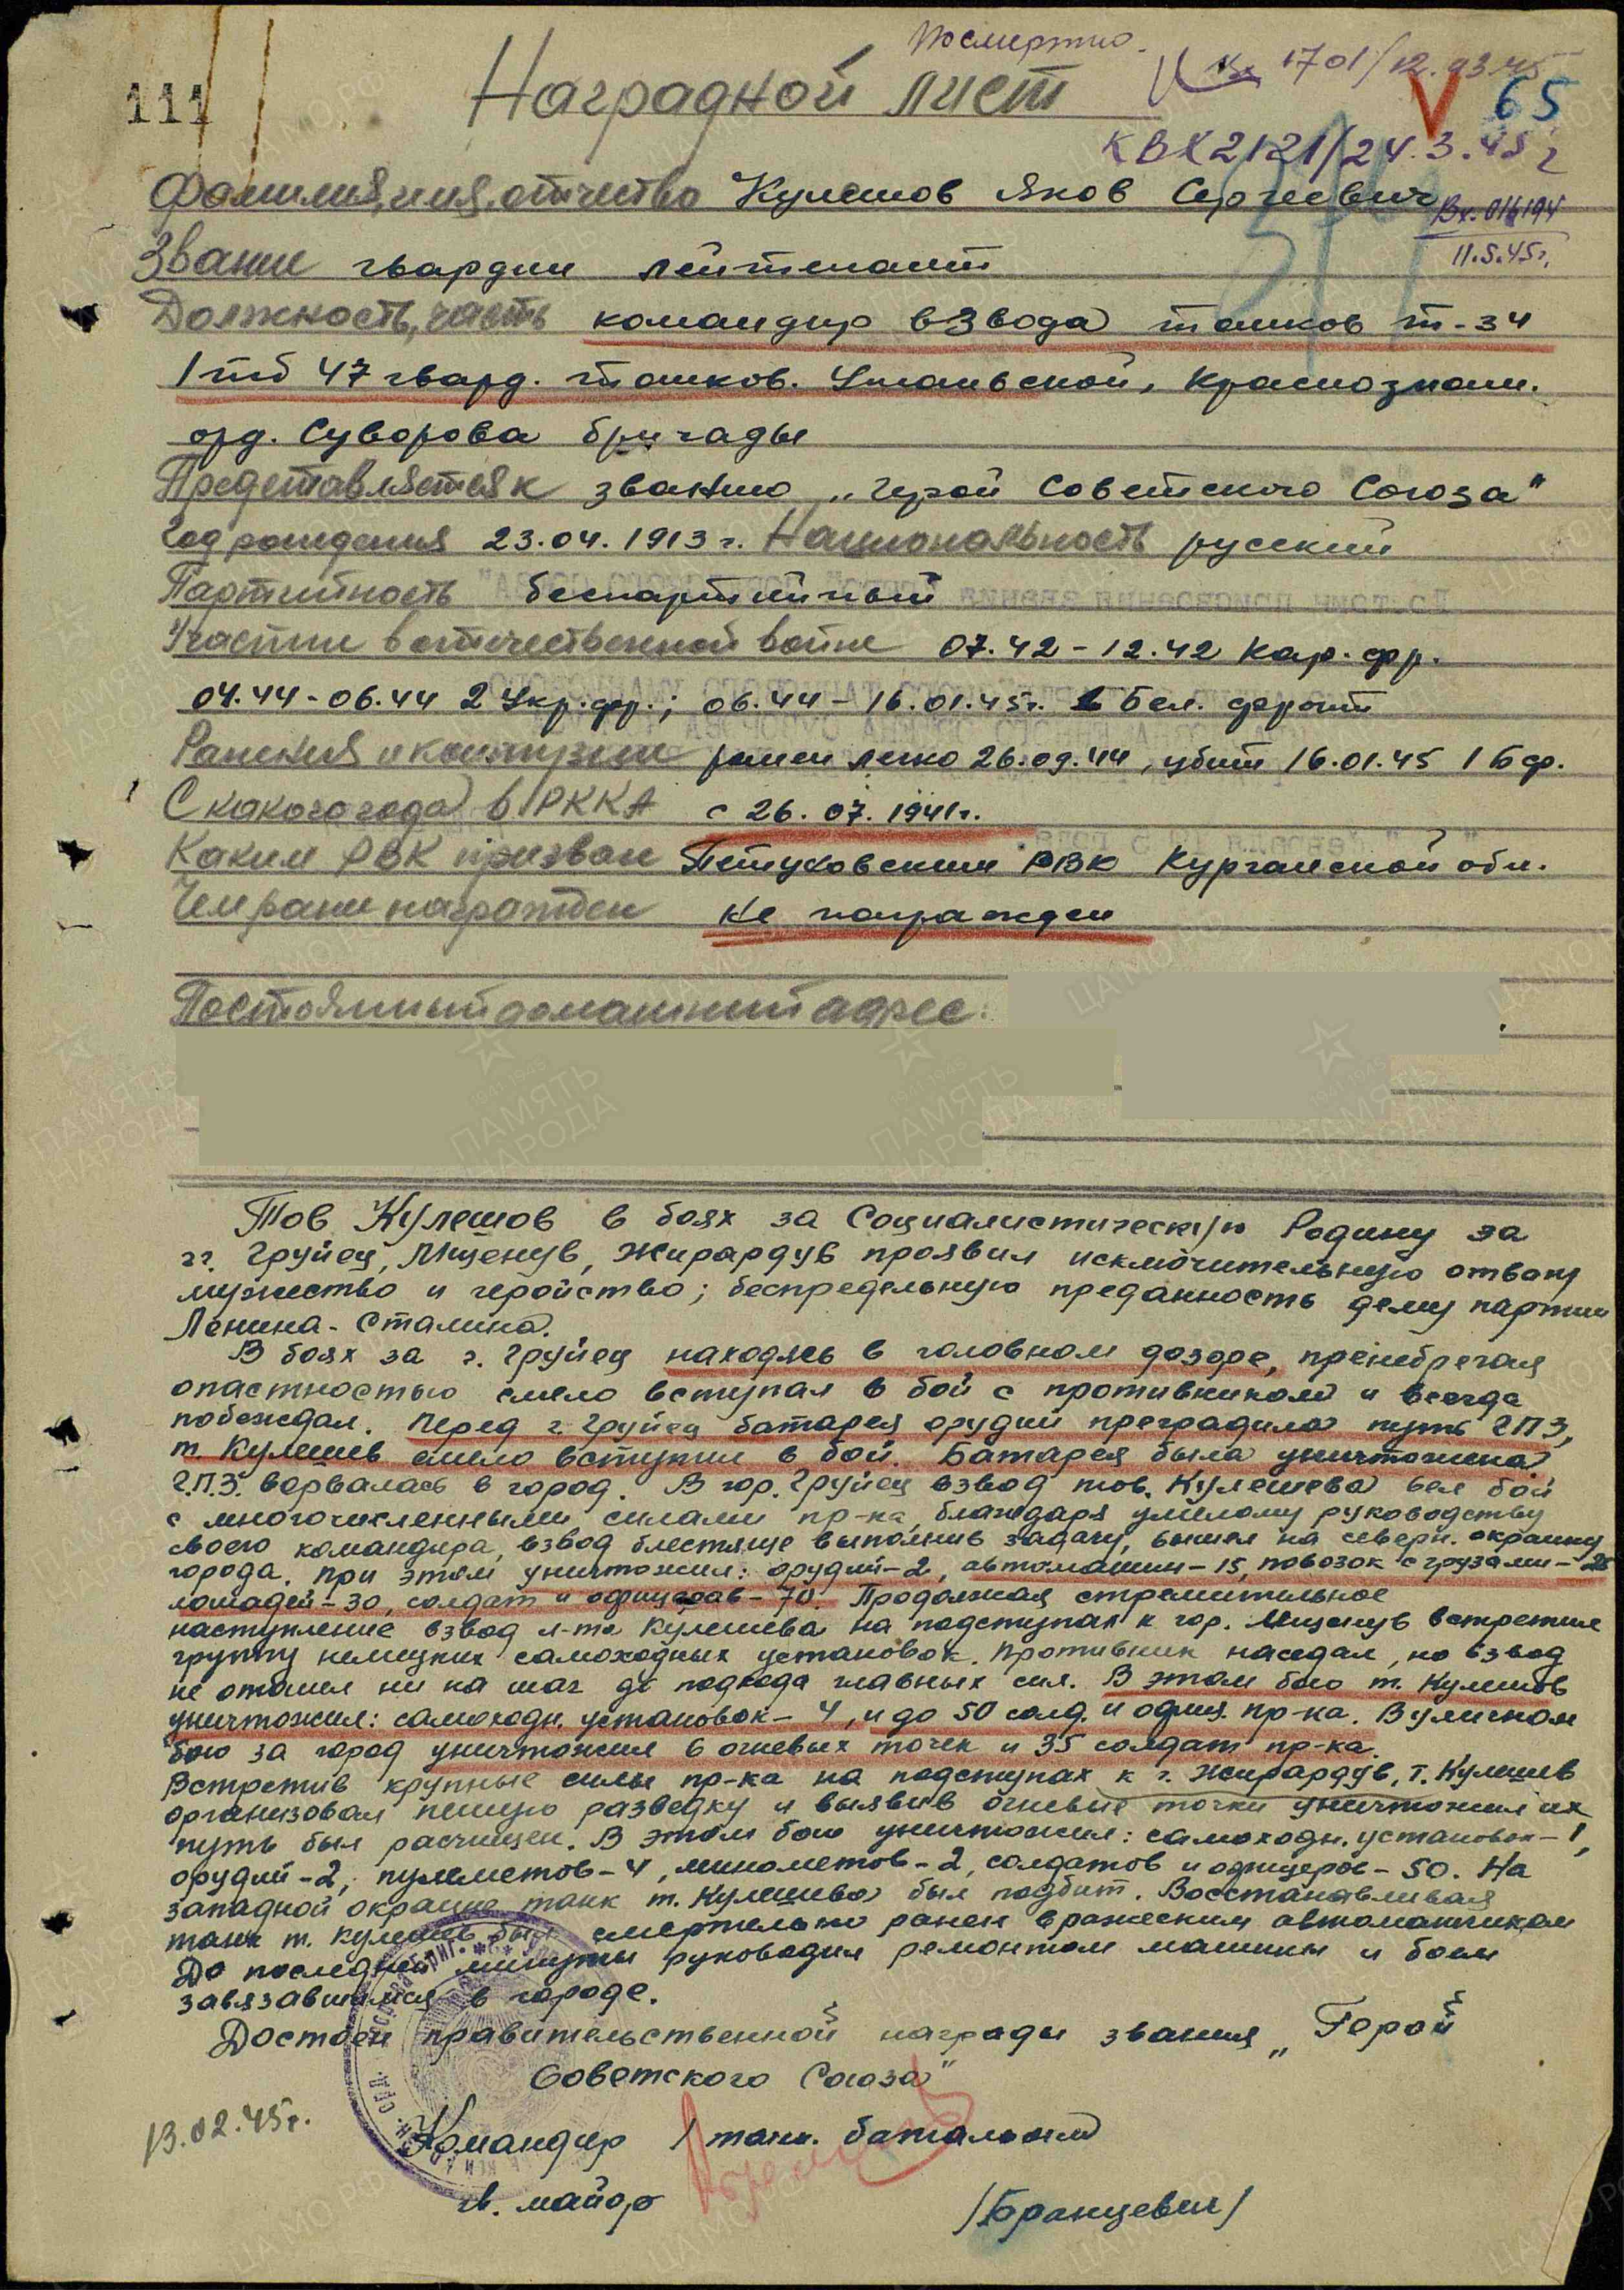 Посмертно.
Вх 1701/12.03.45
111
Наградной лист
V 65
КВХ2121/24.3.45г
Фамилия, имя, отчество Кулешов Яков Сергеевич
Вх. 016194
11.5.45г.
Звание гвардии лейтенант
Должность, часть командир взвода танков т-34
1 тб 47 гвард. танков. Уманьской, Краснознам.
орд. Суворова бригады
Представляется к званию „Герой Советского Союза"
Год рождения 23.04.1913г. Национальность русский
Партийность беспартийный
Участие в отечественной войне 07.42-12.42 Кар. фр.
04.44-06.44 2 Укр. фр.; 06.44-16.01.45г. 1 Бел. фронт
Ранения и контузии ранен легко 26.09.44, убит 16.01.45 1 Бф.
С какого года в РККА с 26.07.1941г.
Каким РВК призван Петуховским РВК Курганской обл.
Чем ранее награжден не награжден
Постоянный домашний адрес:
Тов Кулешов в боях за Социалистическую Родину за
гг. Груйец, Мщенув, Жирардув проявил исключительную отвагу
мужество и геройство; беспредельную преданность делу партии
Ленина-Сталина.
В боях за г. Груйец находясь в головном дозоре, пренебрегая
опастностью смело вступал в бой с противником и всегда
побеждал. Перед г Груйец батарея орудий преградила путь ГПЗ,
т. Кулешев смело вступил в бой. Батарея была уничтожена
Г.П.З. ворвалась в город. В гор. Груйец взвод тов. Кулешева вел бой
с многочисленными силами пр-ка, благодаря умелому руководству
своего командира, взвод блестяще выполнив задачу, вышел на северн. окраину
города. При этом уничтожил: орудий-2, автомашин-15, повозок с грузами-25
лошадей-30, солдат и офицеров-70. Продолжая стремительное
наступление взвод л-та Кулешева на подступах к гор. Мщенув встретил
группу немецких самоходных установок. Противник наседал, но взвод
не отошел ни на шаг до подхода главных сил. В этом бою т. Кулешов
уничтожил: самоходн. установок-4, и до 50 солд. и офиц. пр-ка. В уличном
бою за город уничтожил 6 огневых точек и 35 солдат пр-ка.
Встретив крупные силы пр-ка на подступах к г. Жирардув, т. Кулешев
организовал пешую разведку и выявив огневые точки уничтожил их
путь был расчищен. В этом бою уничтожил: самоходн. установок-1,
орудий-2, пулеметов-4, минометов-2, солдатов и офицеров-50. На
западной окраине танк т. Кулешева был подбит. Восстанавливая
танк т. Кулешев был смертельно ранен вражеским автоматчиком
До последней минуты руководил ремонтом машины и боем
завязавшимся в городе.
Достоен правительственной награды звания „Герой
Советского Союза"
13.02.45г.
Командир 1 танк. батальона
гв. майор
/Бранцевич/